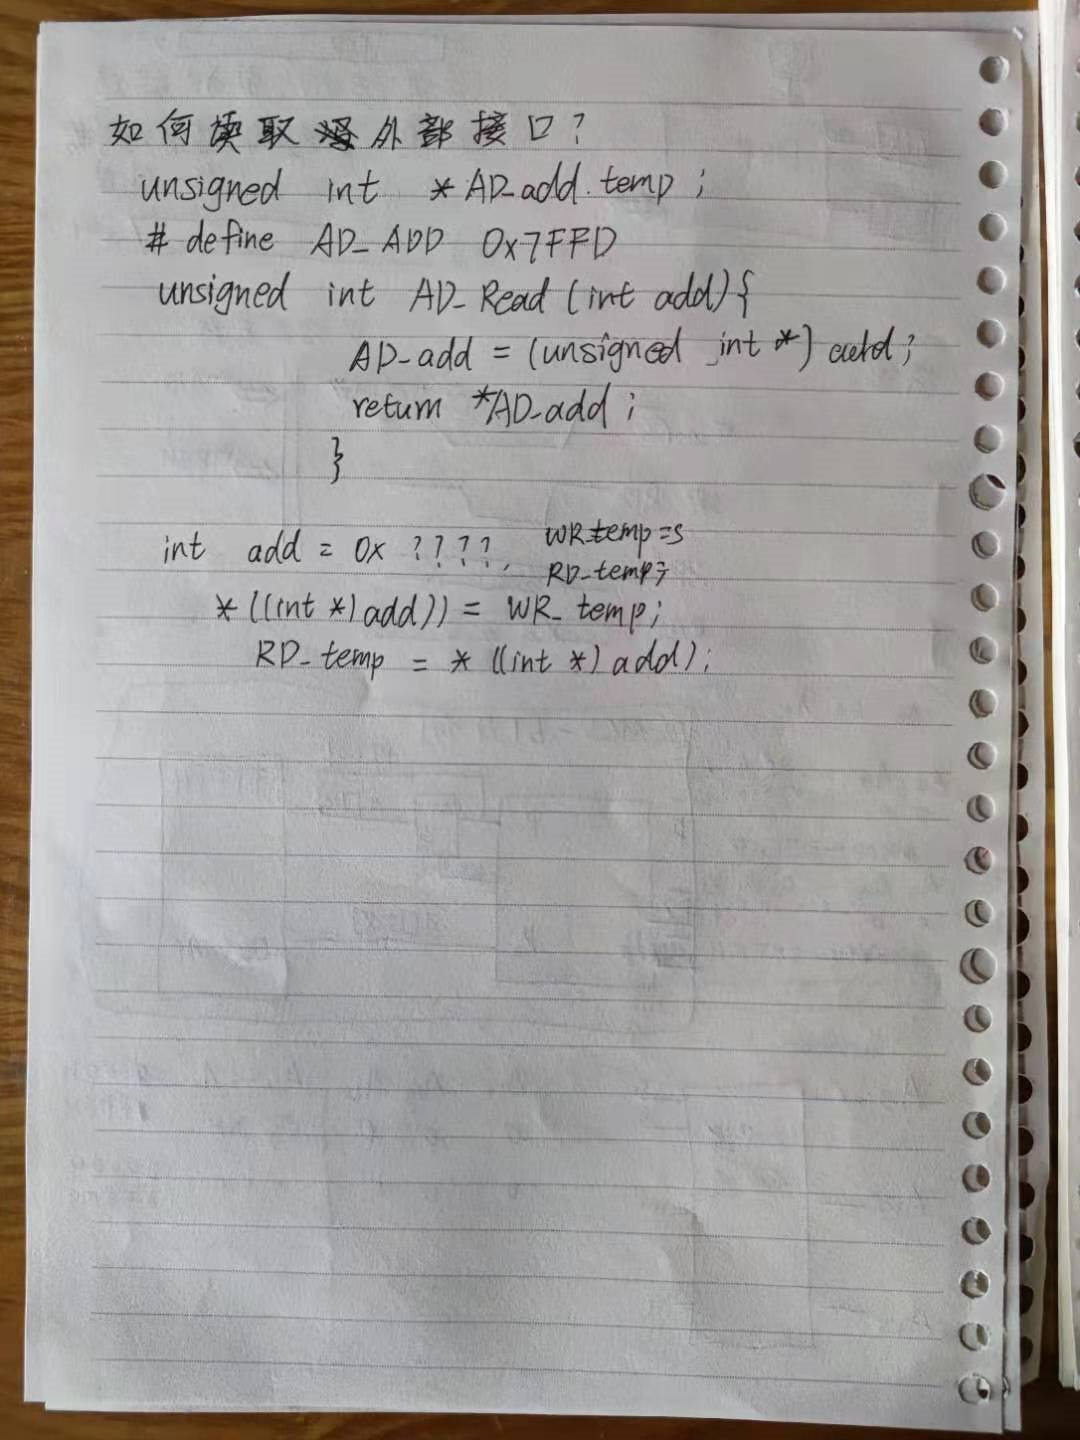 如何读取外部接口?
unsigned int *AD_add.temp;
# define AD_ADD 0x7FFD
unsigned int AD_Read (int add){
AD_add = (unsigned int *) add;
return *AD_add;
}
int add = 0x ????, WR_temp=5
RD_temp;
*((int *) add)) = WR_temp;
RD_temp = *((int *) add);